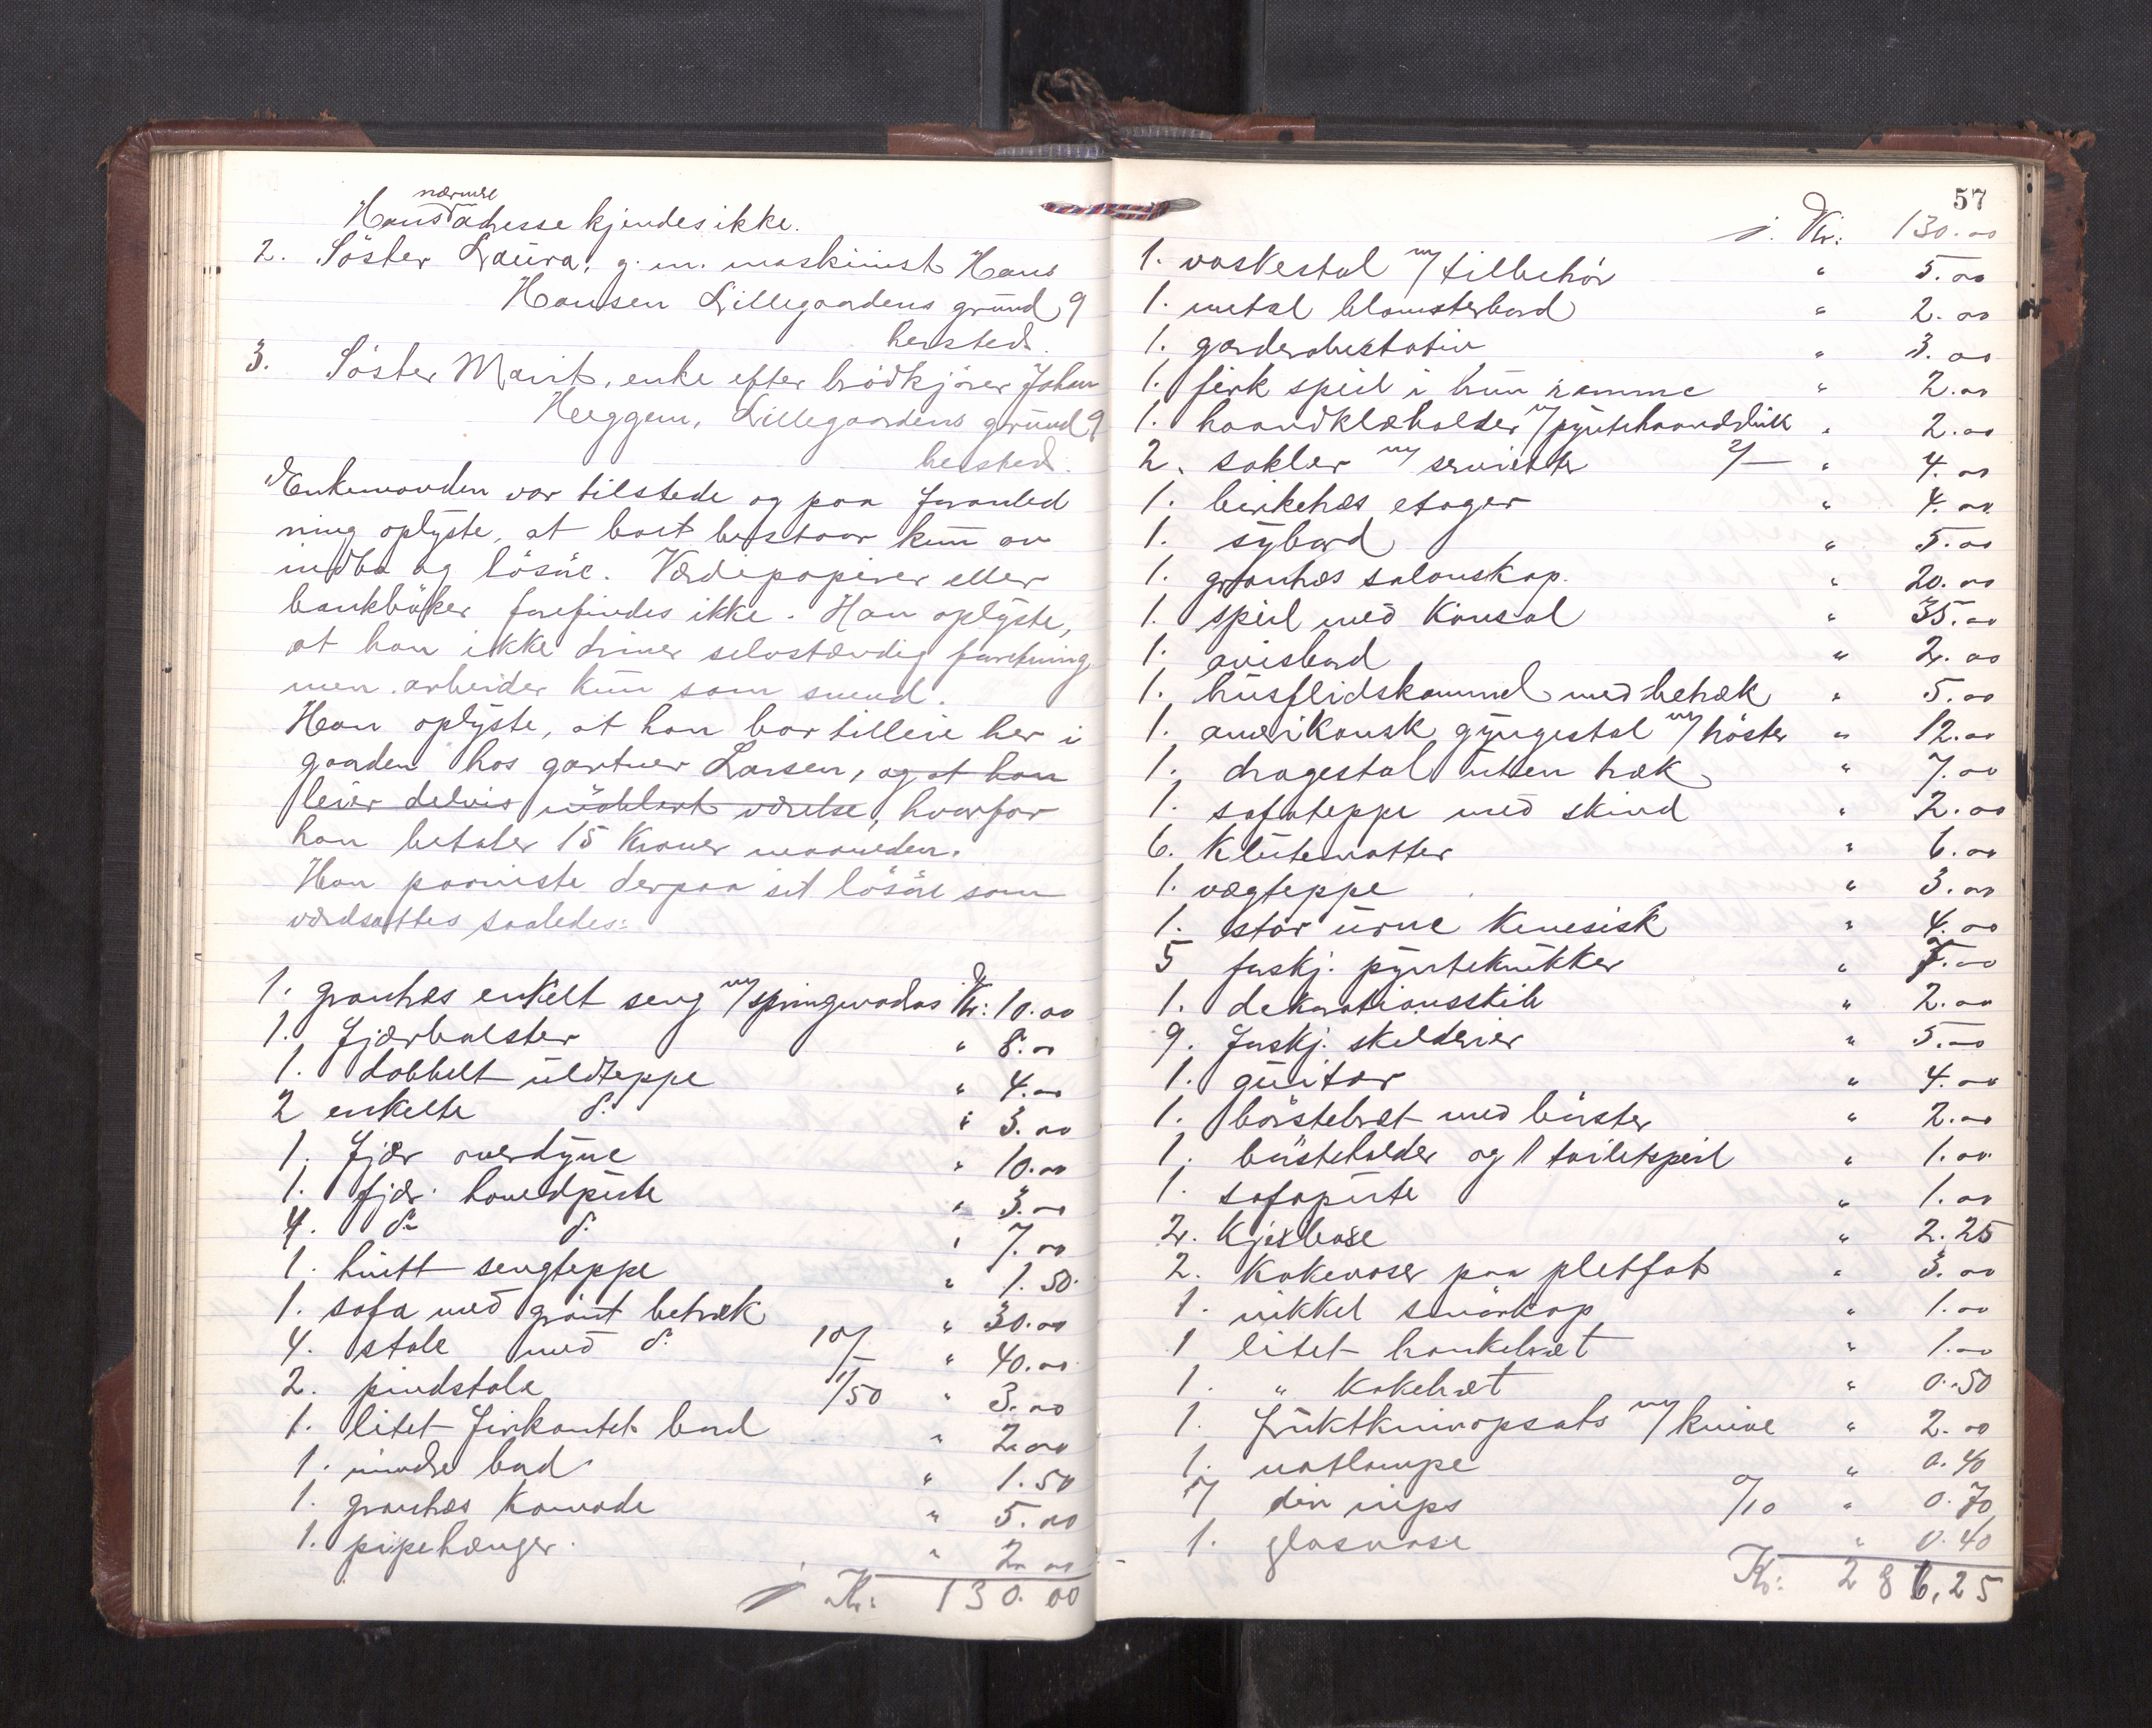 nærmere
Hans adresse kjendes ikke.
2. Söster Laura, g. m. maskinist Hans
Hansen Lillegaardens grund 9
hersteds.
3. Söster Marit, enke efter brödkjörer Johan
Heggem, Lillegaardens grund 9
hersteds.
Enkemanden var tilstede og paa foranled
ning oplyste, at boet bestaar kun av
indbo og lösöre. Værdipapirer eller
bankböker forefindes ikke. Han oplyste,
at han ikke driver selvstændig forretning
men arbeider kun som svend.
Han oplyste, at han bor tilleie her i
gaarden hos gartner Larsen, og at han
leier delvis möblert værelse, hvorfor
han betaler 15 Kroner maaneden.
Han paaviste derpaa sit lösöre som
værdsattes saaledes:
1. grantræs enkelt seng m/ springmadras Kr: 10.00
1. fjærbolster " 8.00
1. dobbelt uldteppe " 4.00
2 enkelte d. " 3.00
1. fjær overdyne " 10.00
1. fjær hovedpute " 3.00
4. d. d. " 7.00
1. hvitt sengteppe " 1.50
1. sofa med grönt betræk " 30.00
4. stole med d. 10/- " 40.00
2. pindstole 1/50 " 3.00
1. litet firkantet bord " 2.00
1. mindre bord " 1.50
1. grantræs Komode " 5.00
1. pipehænger " 2.00
Kr: 130.00
57
Kr: 130.00
1. vaskestol m/ tilbehör " 5.00
1. metal blomsterbord " 2.00
1. garderobestativ " 3.00
1. firk speil i brun ramme " 2.00
1. haandklæholder m/ pyntehaandduk " 2.00
2. sokler m/ servietter 2/- " 4.00
1. birketræs etager " 4.00
1. sybord " 5.00
1. grantræs salonskap " 20.00
1. speil med Konsol " 35.00
1. avisbord " 2.00
1. husflidskommel med betræk " 5.00
1. amerikansk gyngestol m/ " 12.00
1. dragestol uten træk " 7.00
1. sofateppe med skind " 2.00
6. Klutematter " 6.00
1. vægteppe " 3.00
1. stor urne Kinesisk " 4.00
5 forskj. pyntekrukker " 7.00
1. dekorationsskilt " 2.00
9. forskj. skilderier " 5.00
1. guitar " 4.00
1. börstebræt med börster " 2.00
1. börsteholder og 1 toiletspeil " 1.00
1. sofapute " 1.00
2. Kjeksbokse " 2.25
2. Kakevaser paa pletfot " 3.00
1. nikkel smörkop " 1.00
1 litet hankebræt " 1.00
1. " Kakebræt " 0.50
1. fruktknivopsats m/ knive " 2.00
1. natlampe " 0.40
7 div nips 0/10 " 0.70
1. glasvase " 0.40
Kr: 286,25